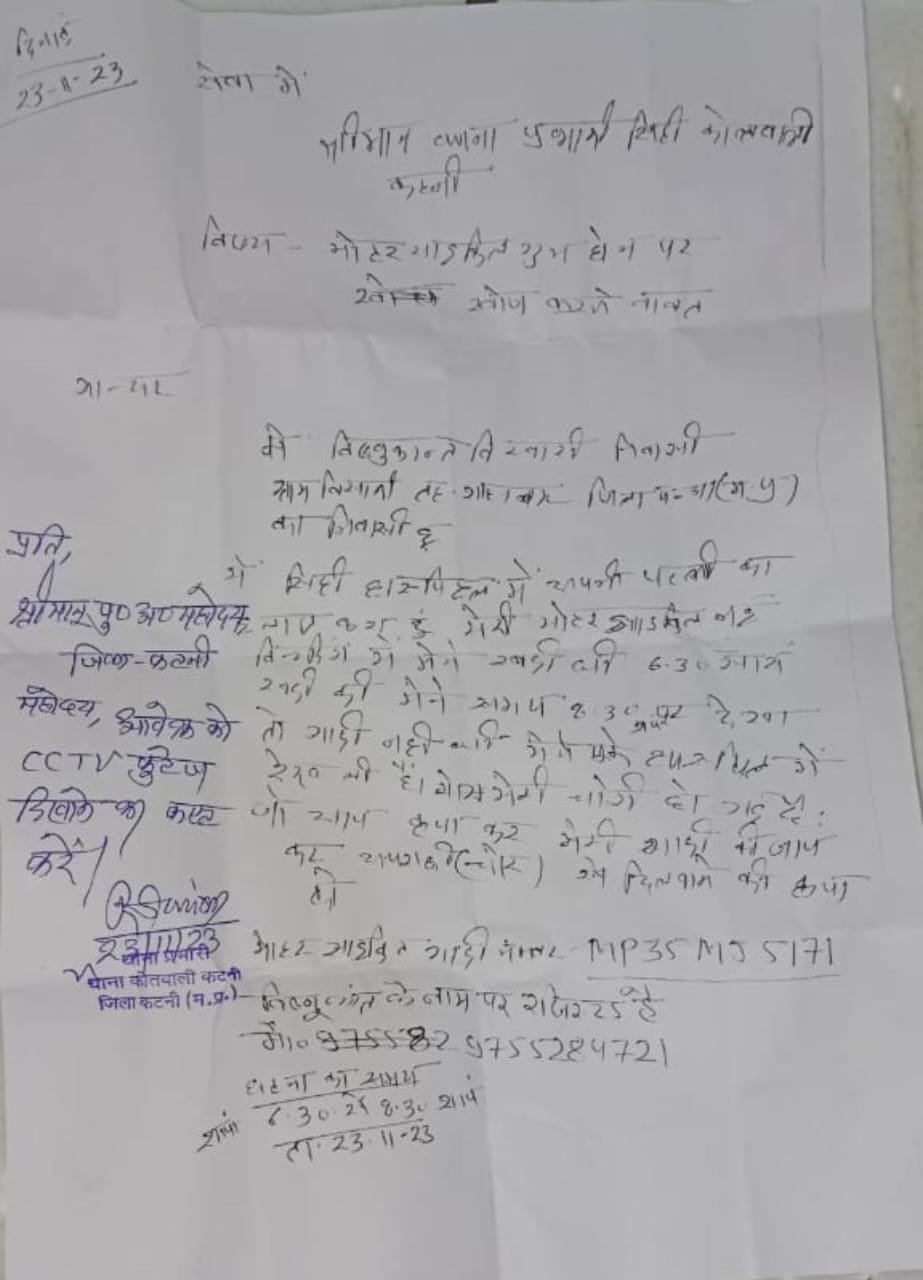 दिनांक
23-11-23
सेवा में
श्रीमान थाना प्रभारी सिटी कोतवाली
कटनी
विषय - मोटर साइकिल गुम होने पर
खोज करने बावत
मैं विष्णुकान्त तिवारी निवासी
ग्राम तह. जिला पन्ना (म.प्र)
का निवासी हूं
में सिटी हास्पिटल में अपनी पत्नी का
हूं मेरी मोटर साइकिल
में मेने खडी की 6.30 सायं
खडी की मेने समय 8.30 पर देखा
तो गाडी नही थी मेने में
देख ली है। मेरी चोरी हो गई है।
जो आप कृपा कर मेरी गाडी की जाच
कर (चोर) से दिलवाने की कृपा
करें
मोटर साइकिल गाडी नम्बर MP35 MJ 5171
विष्णुकांत के नाम पर है
मो० 9755284721
घटना का समय
शाम 6.30 से 8.30 शायं
ता. 23.11-23
प्रति,
श्रीमान पु० अ० महोदय,
जिला-कटनी
महोदय, आवेदक को
CCTV फुटेज
दिखाने का कष्ट
करें।
23/11/23
थाना प्रभारी
थाना कोतवाली कटनी
जिला कटनी (म.प्र.)